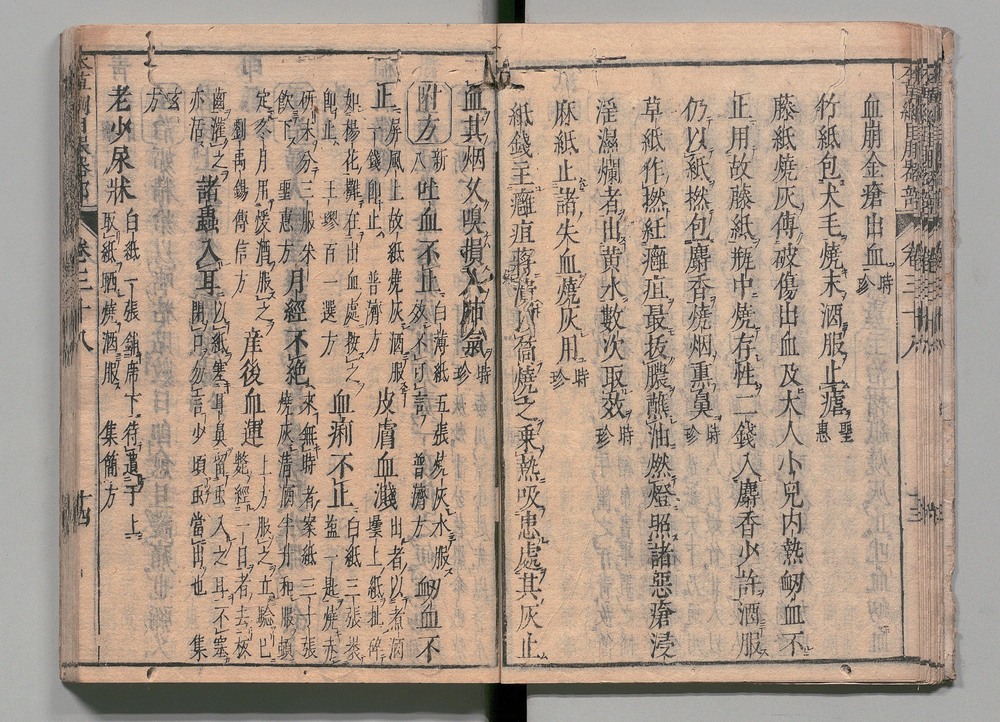 血崩金瘡出血時珍
竹紙包犬毛燒末酒服止瘧聖惠
藤紙燒灰傅破傷出血及大人小兒内熱衂血不
止用故藤紙瓶中燒存性二錢入麝香少許酒服
仍以紙撚包麝香燒烟熏鼻時珍
草紙作撚紝癰疽最拔膿蘸油燃燈照諸惡瘡浸
淫濕爛者出黄水數次取效時珍
麻紙止諸失血燒灰用時珍
紙錢主癰疽將潰以筒燒之乗熱吸患處其灰止
血其烟久嗅損人肺氣時珍
附方新八吐血不止白薄紙五張燒灰水服效不可言普濟方衂血不
止屏風上故紙燒灰酒服一錢即止普濟方皮膚血濺出者以煮酒壜上紙扯碎
如楊花攤在出血處按之即止王璆百一選方血痢不止白紙三張裹鹽一匙燒赤
研末分三服米飲下聖惠方月經不絶來無時者案紙三十張燒灰清酒半升和服頓
定冬月用煖酒服之劉禹錫傳信方産後血運上方服之立驗巳斃經一日者去板
齒灌之亦活諸蟲入耳以紙塞耳鼻留虫入之耳不塞閉口勿言少頃虫當出也集
玄方
老少尿牀白紙一張鋪席下待遺于上取紙晒燒酒服集簡方
卷三十八
十四
卷三十八